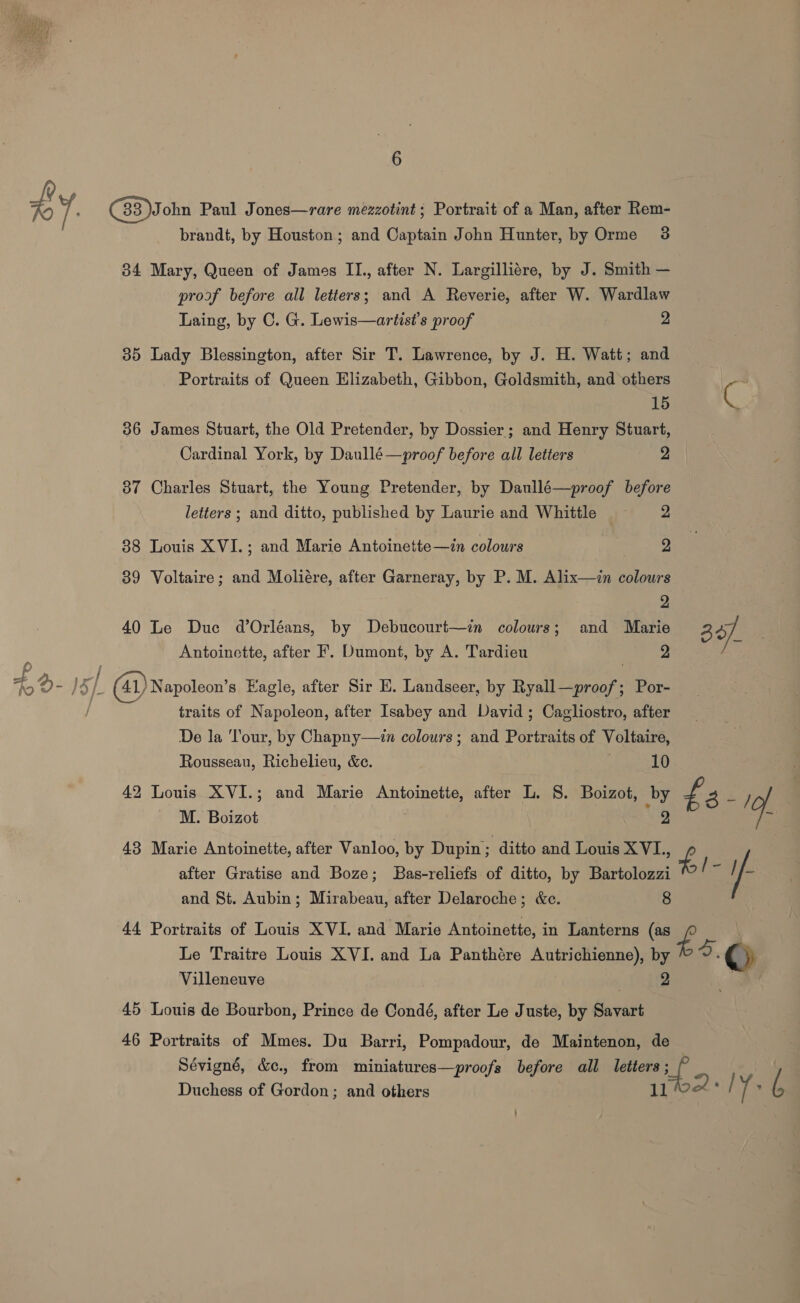 6
£7. 33 John Paul Jones—rare mezzotint; Portrait of a Man, after Rem-
brandt, by Houston; and Captain John Hunter, by Orme 3
34 Mary, Queen of James II., after N. Largilliére, by J. Smith—
proof before all letters; and A Reverie, after W. Wardlaw
Laing, by C. G. Lewis—artist's proof 2
35 Lady Blessington, after Sir T. Lawrence, by J. H. Watt; and
Portraits of Queen Elizabeth, Gibbon, Goldsmith, and others
15
36 James Stuart, the Old Pretender, by Dossier; and Henry Stuart,
Cardinal York, by Daullé—proof before all letters 2
37 Charles Stuart, the Young Pretender, by Daullé—proof before
letters; and ditto, published by Laurie and Whittle 2
38 Louis XVI.; and Marie Antoinette—in colours 2
39 Voltaire; and Moliére, after Garneray, by P. M. Alix—in colours
2
40 Le Duc d'Orléans, by Debucourt—in colours; and Marie
Antoinette, after F. Dumont, by A. Tardieu 2
41 Napoleon's Eagle, after Sir E. Landseer, by Ryall—proof; Por-
traits of Napoleon, after Isabey and David; Cagliostro, after
De la Tour, by Chapny—in colours; and Portraits of Voltaire,
Rousseau, Richelieu, &c. 10
42 Louis XVI.; and Marie Antoinette, after L. S. Boizot, by £3-10/-
M. Boizot 2
43 Marie Antoinette, after Vanloo, by Dupin; ditto and Louis XVI.,
after Gratise and Boze; Bas-reliefs of ditto, by Bartolozzi £1-1/-
and St. Aubin; Mirabeau, after Delaroche; &c. 8
44 Portraits of Louis XVI. and Marie Antoinette, in Lanterns (as
Le Traitre Louis XVI. and La Panthére Autrichienne), by £5.
Villeneuve 2
45 Louis de Bourbon, Prince de Condé, after Le Juste, by Savart
46 Portraits of Mmes. Du Barri, Pompadour, de Maintenon, de
Sévigné, &c., from miniatures—proofs before all letters;
Duchess of Gordon; and others 11